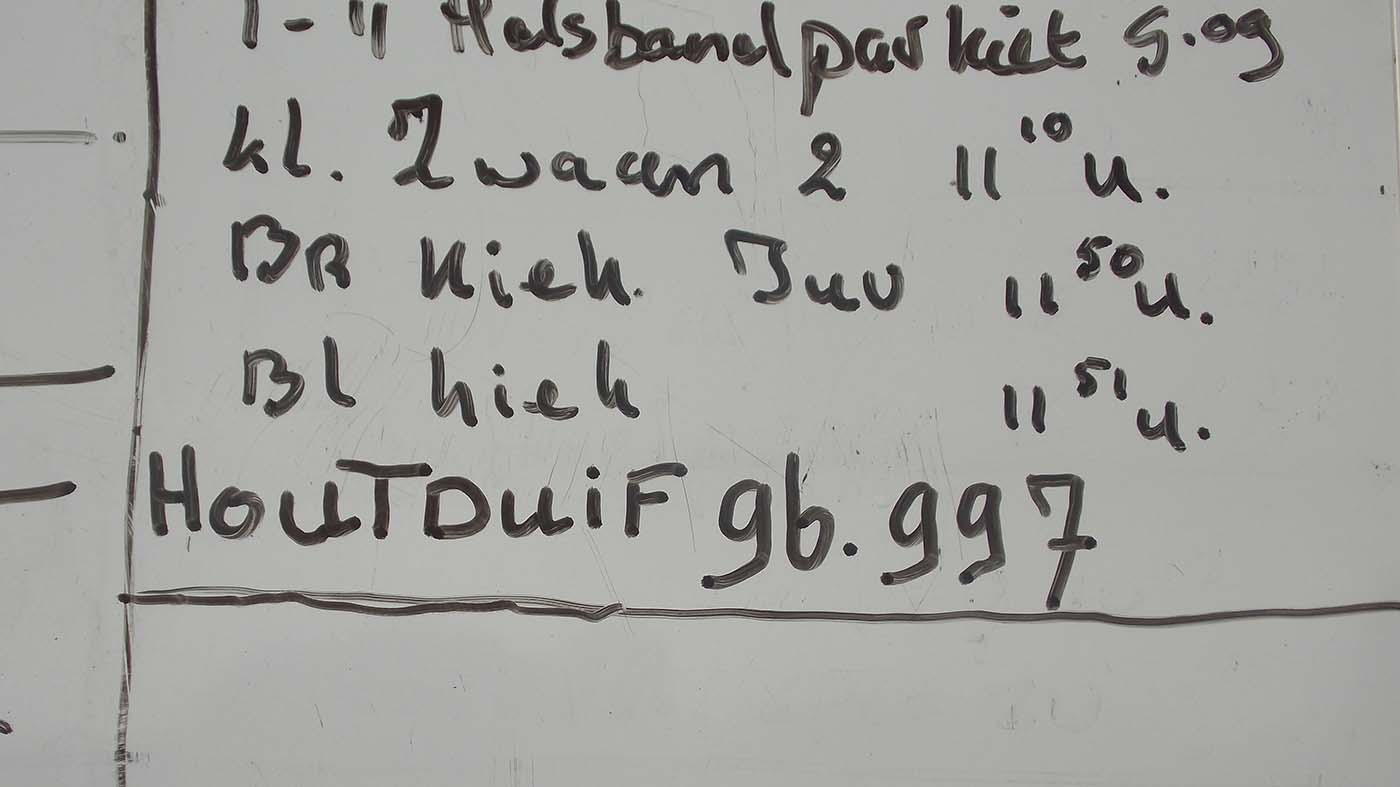 1-11 Halsbandparkiet 9.09
kl. Zwaan 2 11 10 u.
BR Kiek. Juv 11 50 u.
Bl kiek 11 51 u.
HOUTDUiF 96.997